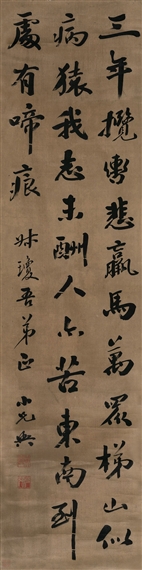 三年攬轡悲羸馬萬眾梯山似
病猿我志未酬人亦苦東南到
處有啼痕 瓊吾弟正 小兄